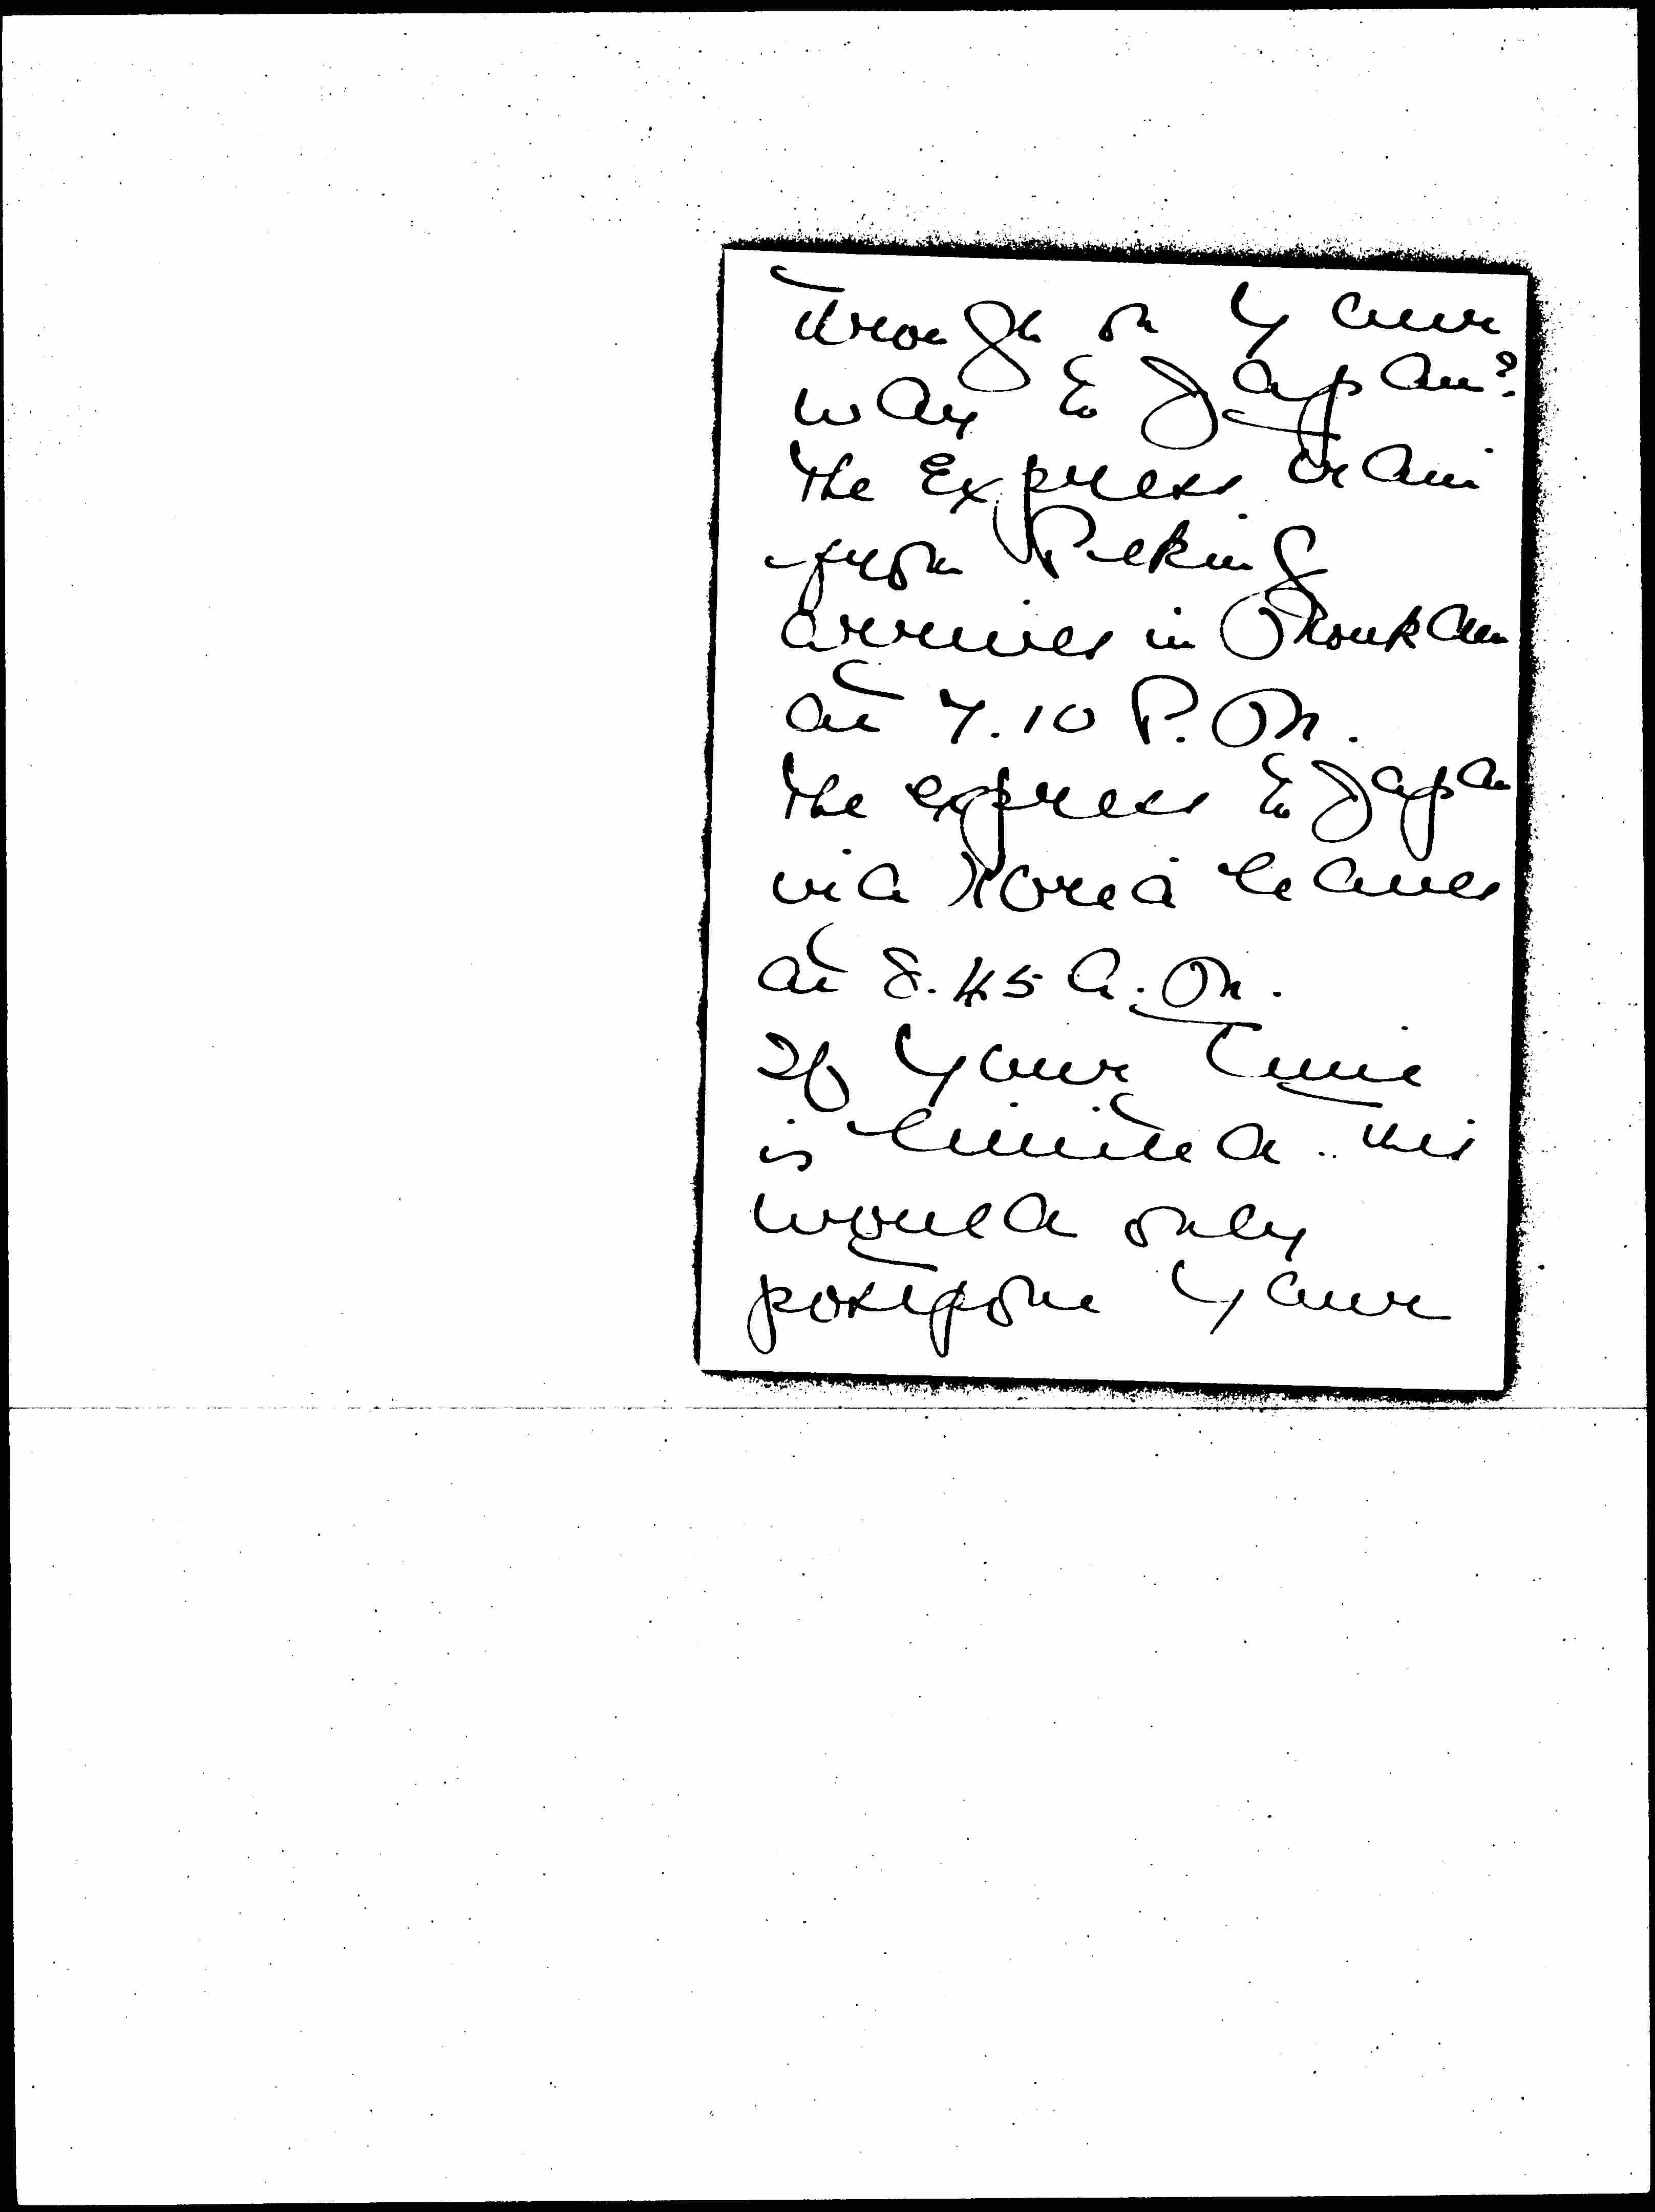 through on your
way to Japan?
The Express train
from Peking
arrives in Moukden
at 7.10 P.M.
The express to Japan
via Korea leaves
at 8.45 A.M.
If your time
is limited.. this
would only
postpone your